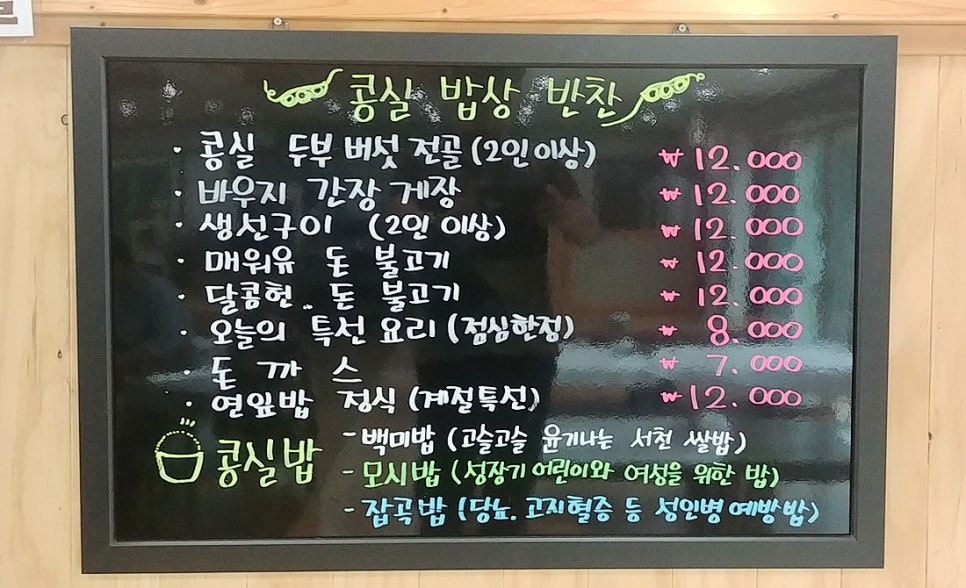 콩실 밥상 반찬
· 콩실 두부 버섯 전골 (2인 이상) ₩ 12.000
· 바우지 간장 게장 ₩ 12.000
· 생선구이 (2인 이상) ₩ 12.000
· 매워유 돈 불고기 ₩ 12.000
· 달콤헌 돈 불고기 ₩ 12.000
· 오늘의 특선 요리 (점심한정) ₩ 8.000
· 돈 까 스 ₩ 7.000
· 연잎밥 정식 (계절특선) ₩ 12.000
콩실밥
- 백미밥 (고슬고슬 윤기나는 서천 쌀밥)
- 모시밥 (성장기 어린이와 여성을 위한 밥)
- 잡곡밥 (당뇨. 고지혈증 등 성인병 예방밥)